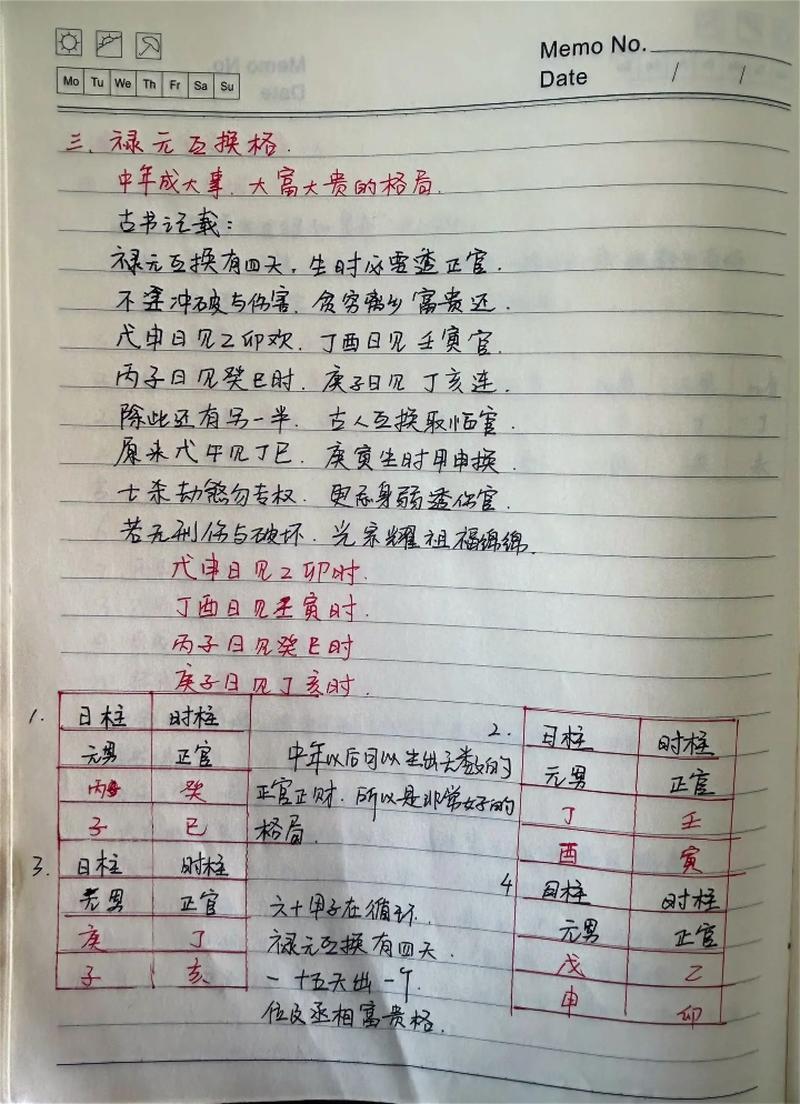 Memo No.
Date / /
Mo Tu We Th Fr Sa Su
三、禄元互换格.
中年成大事.大富大贵的格局.
古书记载:
禄元互换有四天,生时必要透正官.
不逢冲破与伤害.贫穷离乡富贵还.
戊申日见乙卯欢.丁酉日见壬寅官.
丙子日见癸巳时.庚子日见丁亥连.
除此还有另一半.古人互换取临官.
原来戊午见丁巳.庚寅生时甲申换.
七杀劫煞勿专权.更忌身弱透伤官.
若无刑伤与破坏.光宗耀祖福绵绵.
戊申日见乙卯时.
丁酉日见壬寅时.
丙子日见癸巳时
庚子日见丁亥时.
1.
日柱 时柱
元男 正官
丙 癸
子 巳
中年以后可以生出无数的
正官正财.所以是非常好的
格局.
2.
日柱 时柱
元男 正官
丁 壬
酉 寅
3.
日柱 时柱
元男 正官
庚 丁
子 亥
六十甲子在循环.
禄元互换有四天.
一十五天出一个.
位及丞相富贵格.
4
日柱 时柱
元男 正官
戊 乙
申 卯